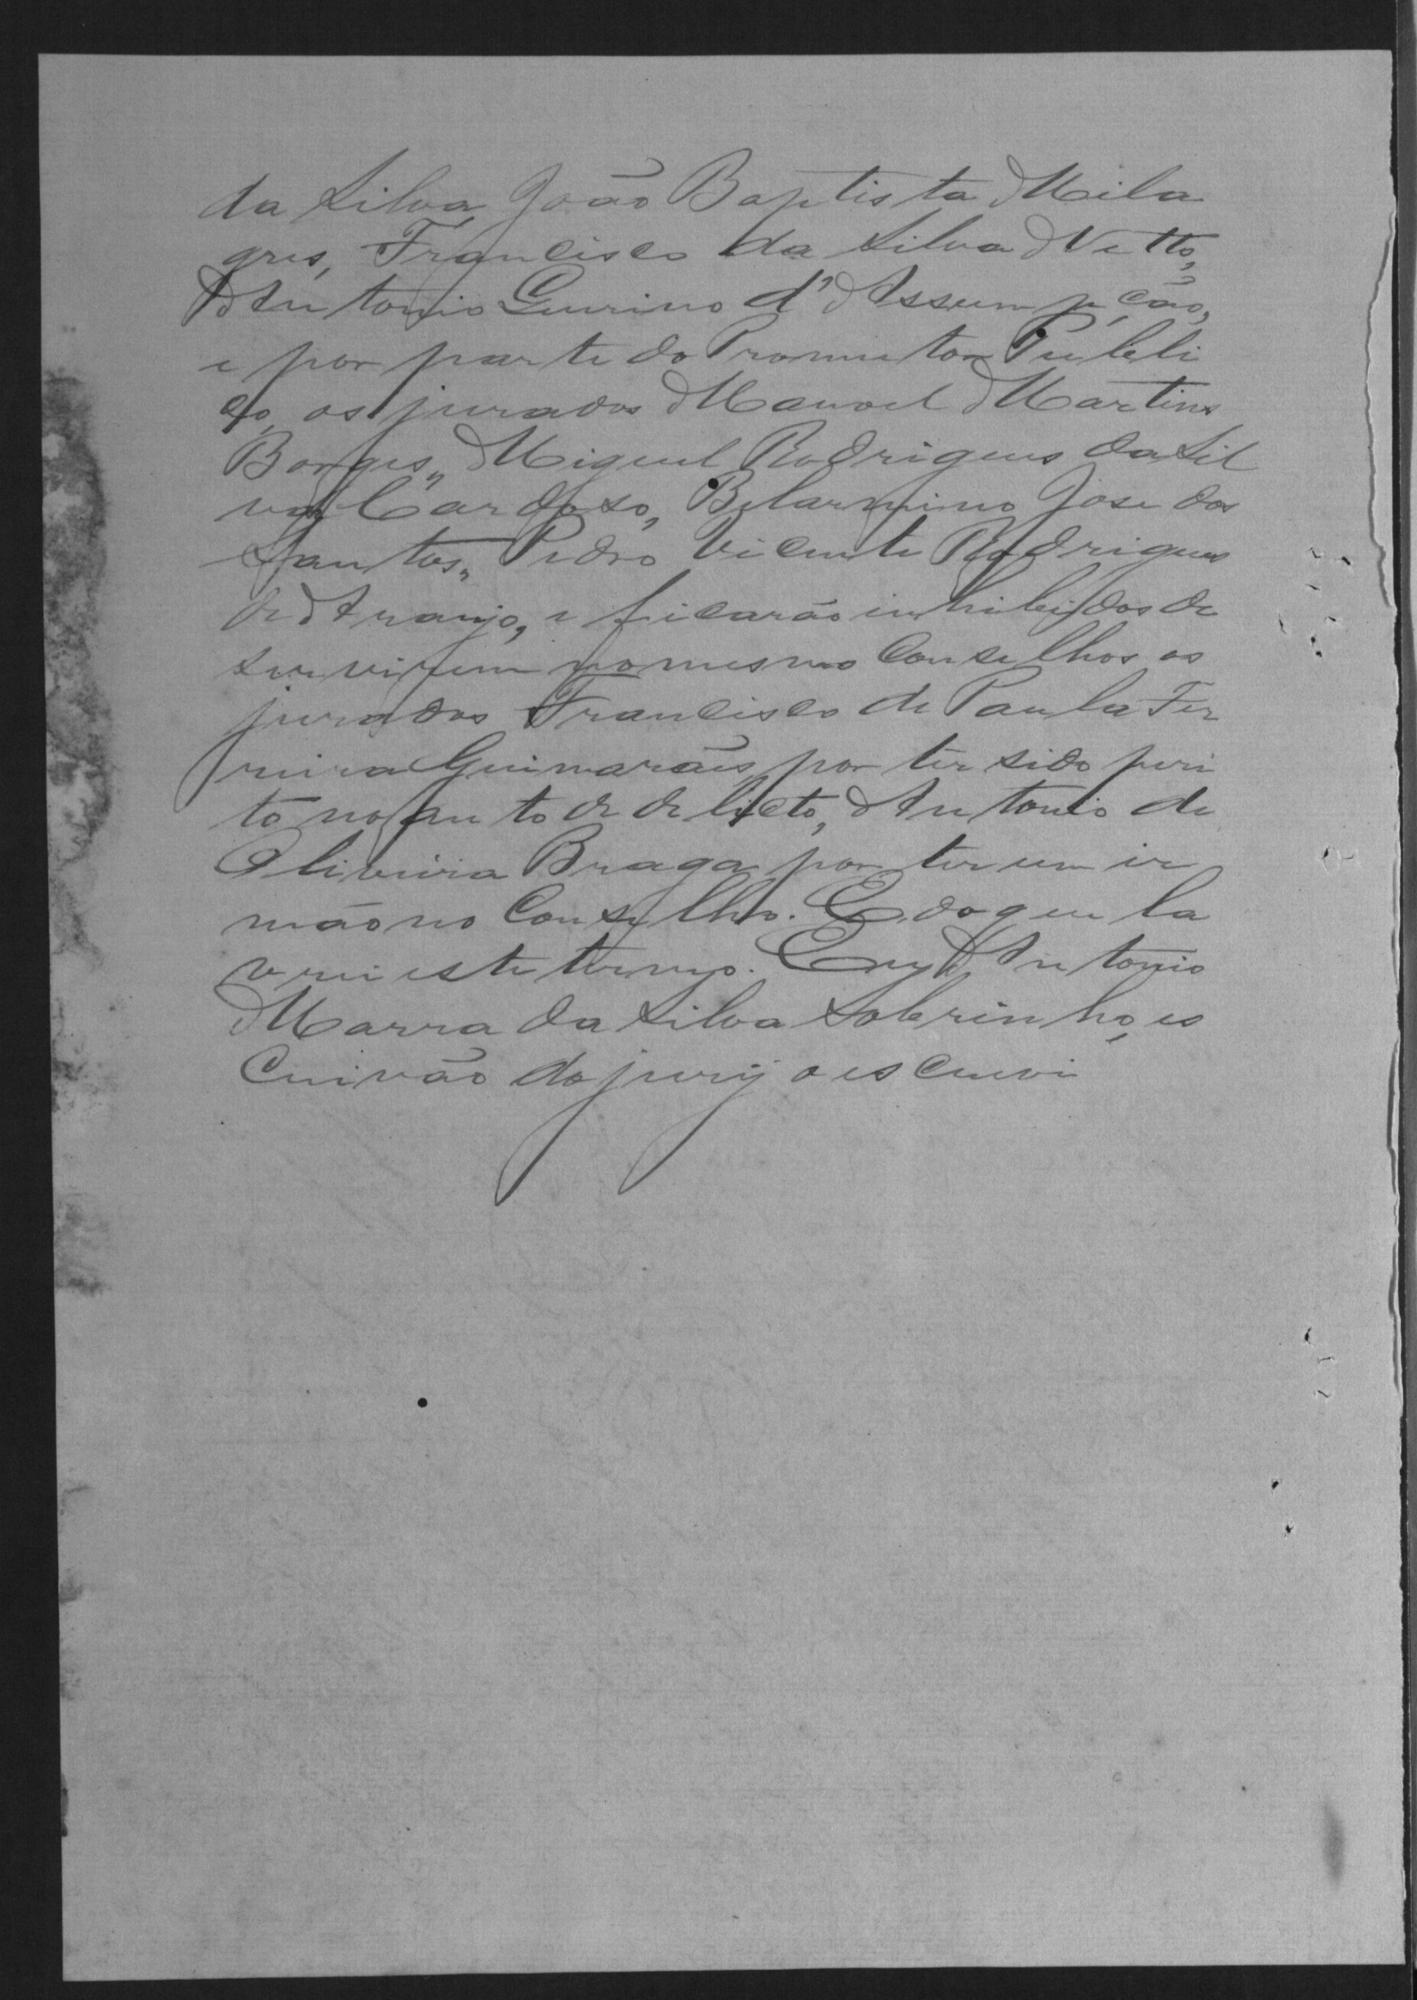 da Silva, João Baptista Mila
gres, Francisco da Silva Netto,
Antonio Gurino d'Assumpção,
e por parte do Promutor Publi
co, os jurados Manoel Martins
Borges, Miguel Rodrigues da Sil
va Cardoso, Belarmino Jose dos
Santos, Pedro Vicente Rodrigues
de Araujo, e ficarão inhibidos de
servirem no mesmo Conselhos os
jurados Francisco de Paula Fer
reira Guimarães por ter sido peri
to no auto de delicto, Antonio de
Oliveira Braga por ter um ir
mão no Conselho. E do que la
vrei este termo. Eu Antonio
Marra da Silva Sobrinho, es
crivão do jury o escrevi